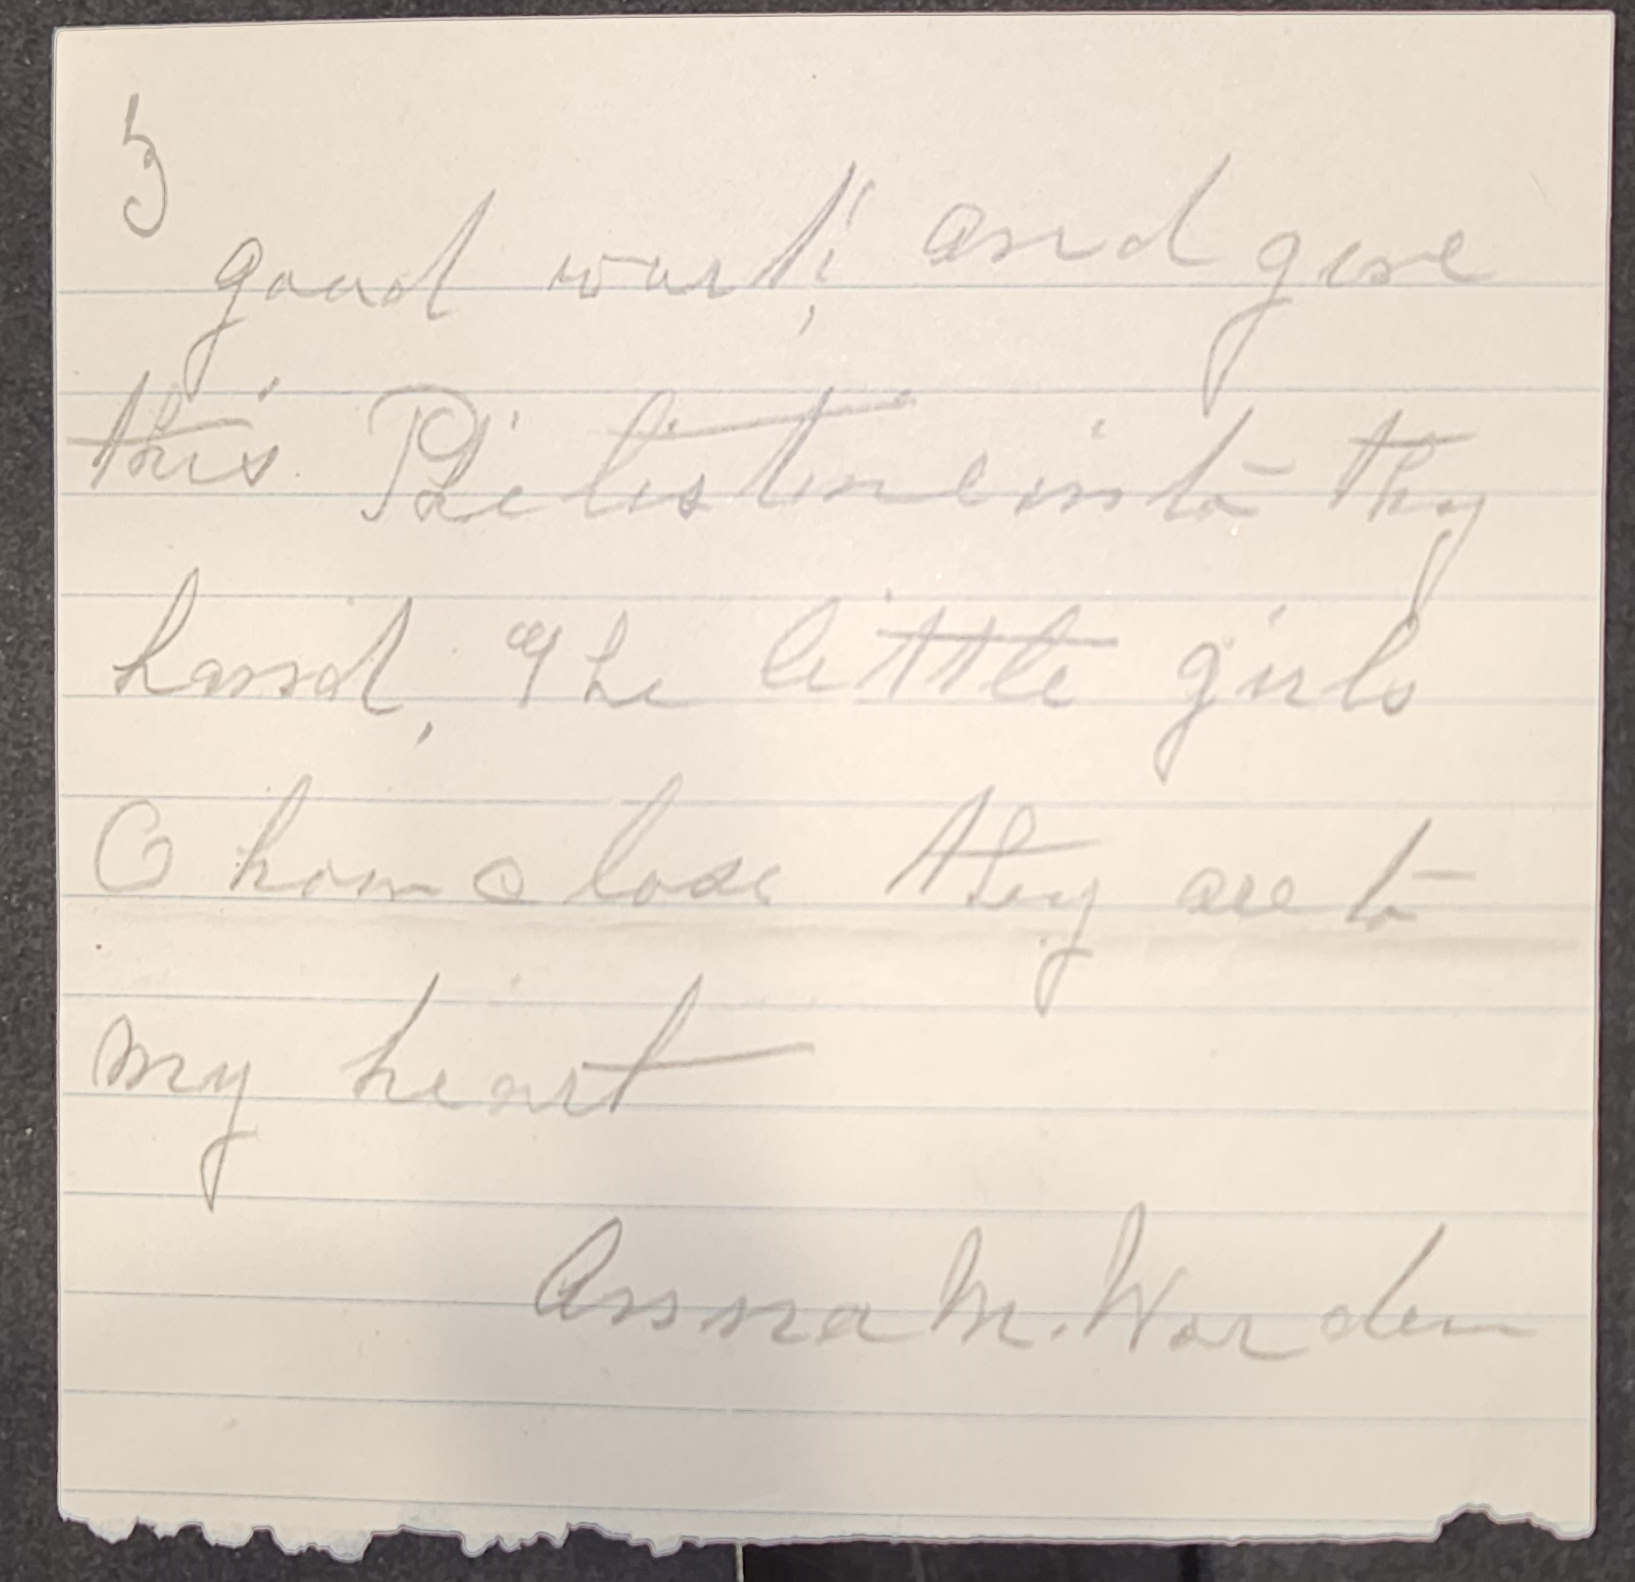 5
good work; and give
this Philistine into thy
hand, The little girls
O how close they are to
my heart
Anna M. Warden